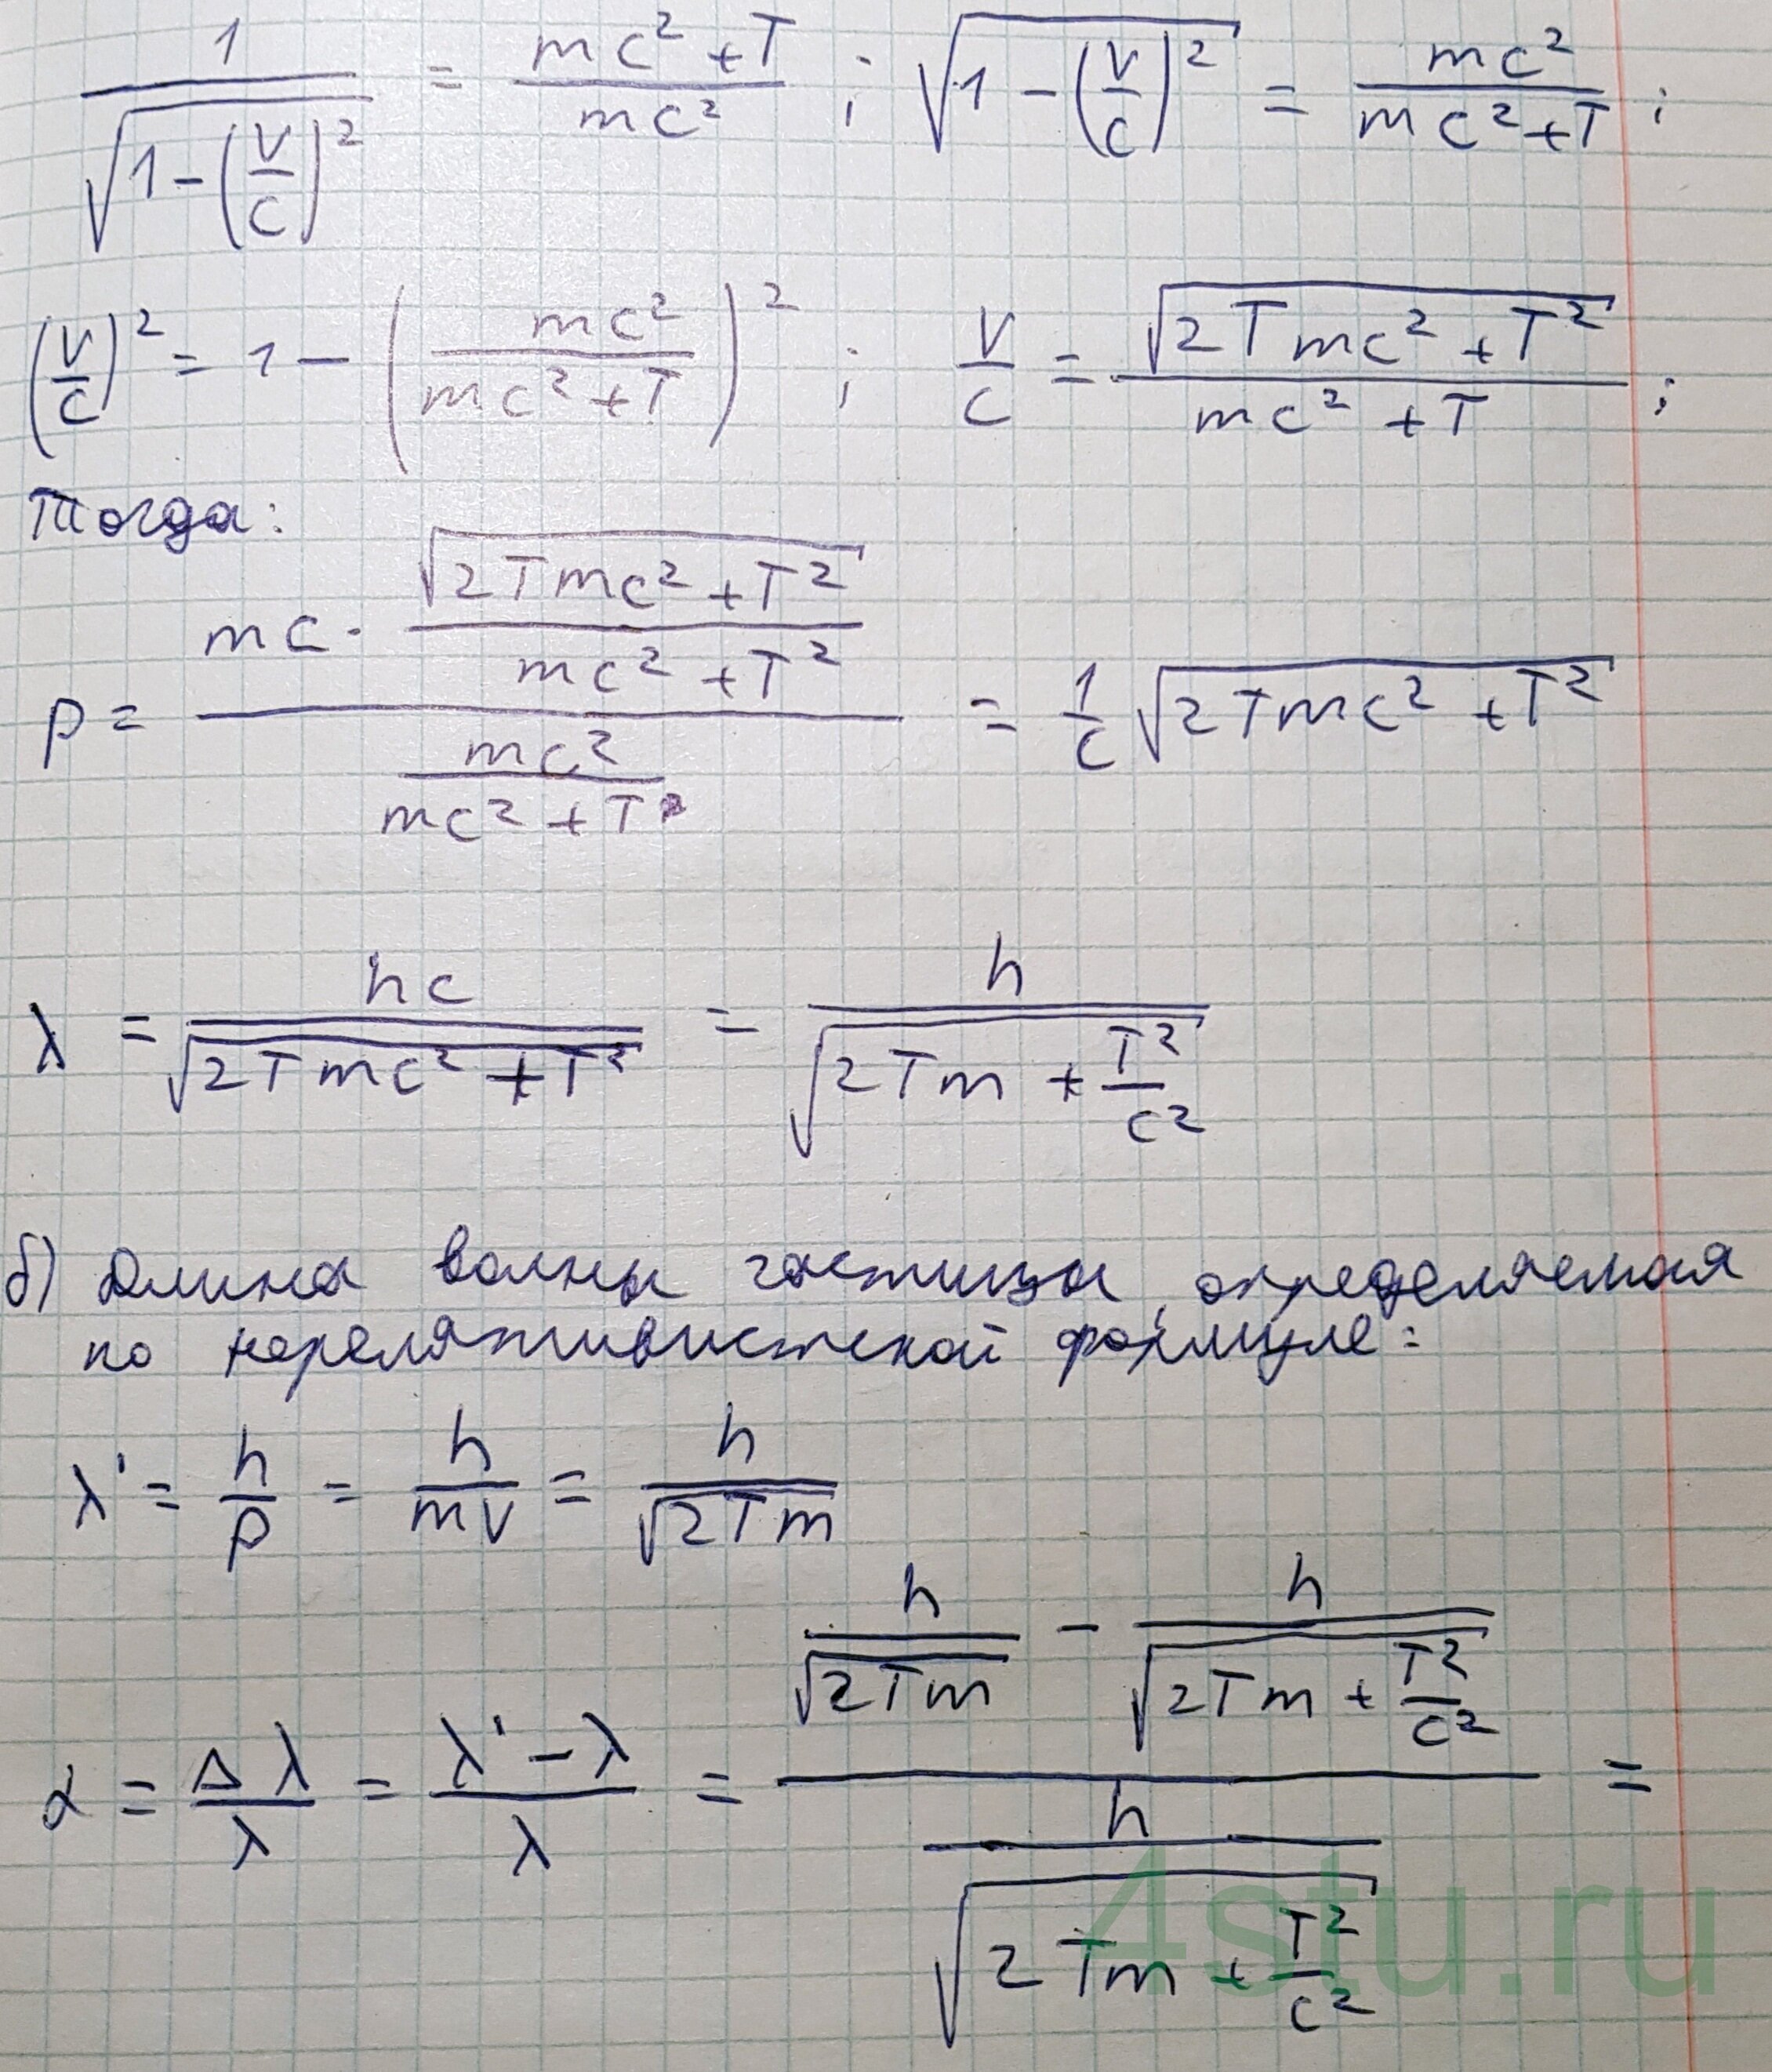 1/√(1-(v/c)²) = (mc²+T)/(mc²) ; √(1-(v/c)²) = (mc²)/(mc²+T) ;
(v/c)² = 1 - (mc²/(mc²+T))² ; v/c = √(2Tmc²+T²)/(mc²+T) ;
Тогда:
p = (mc · √(2Tmc²+T²)/(mc²+T²))/(mc²/(mc²+T)) = 1/c √(2Tmc²+T²)
λ = hc/√(2Tmc²+T²) = h/√(2Tm + T²/c²)
б) Длина волны частицы, определяемая
по нерелятивистской формуле:
λ' = h/p = h/mv = h/√(2Tm)
α = Δλ/λ = (λ'-λ)/λ = (h/√(2Tm) - h/√(2Tm + T²/c²))/(h/√(2Tm + T²/c²)) =
4stu.ru